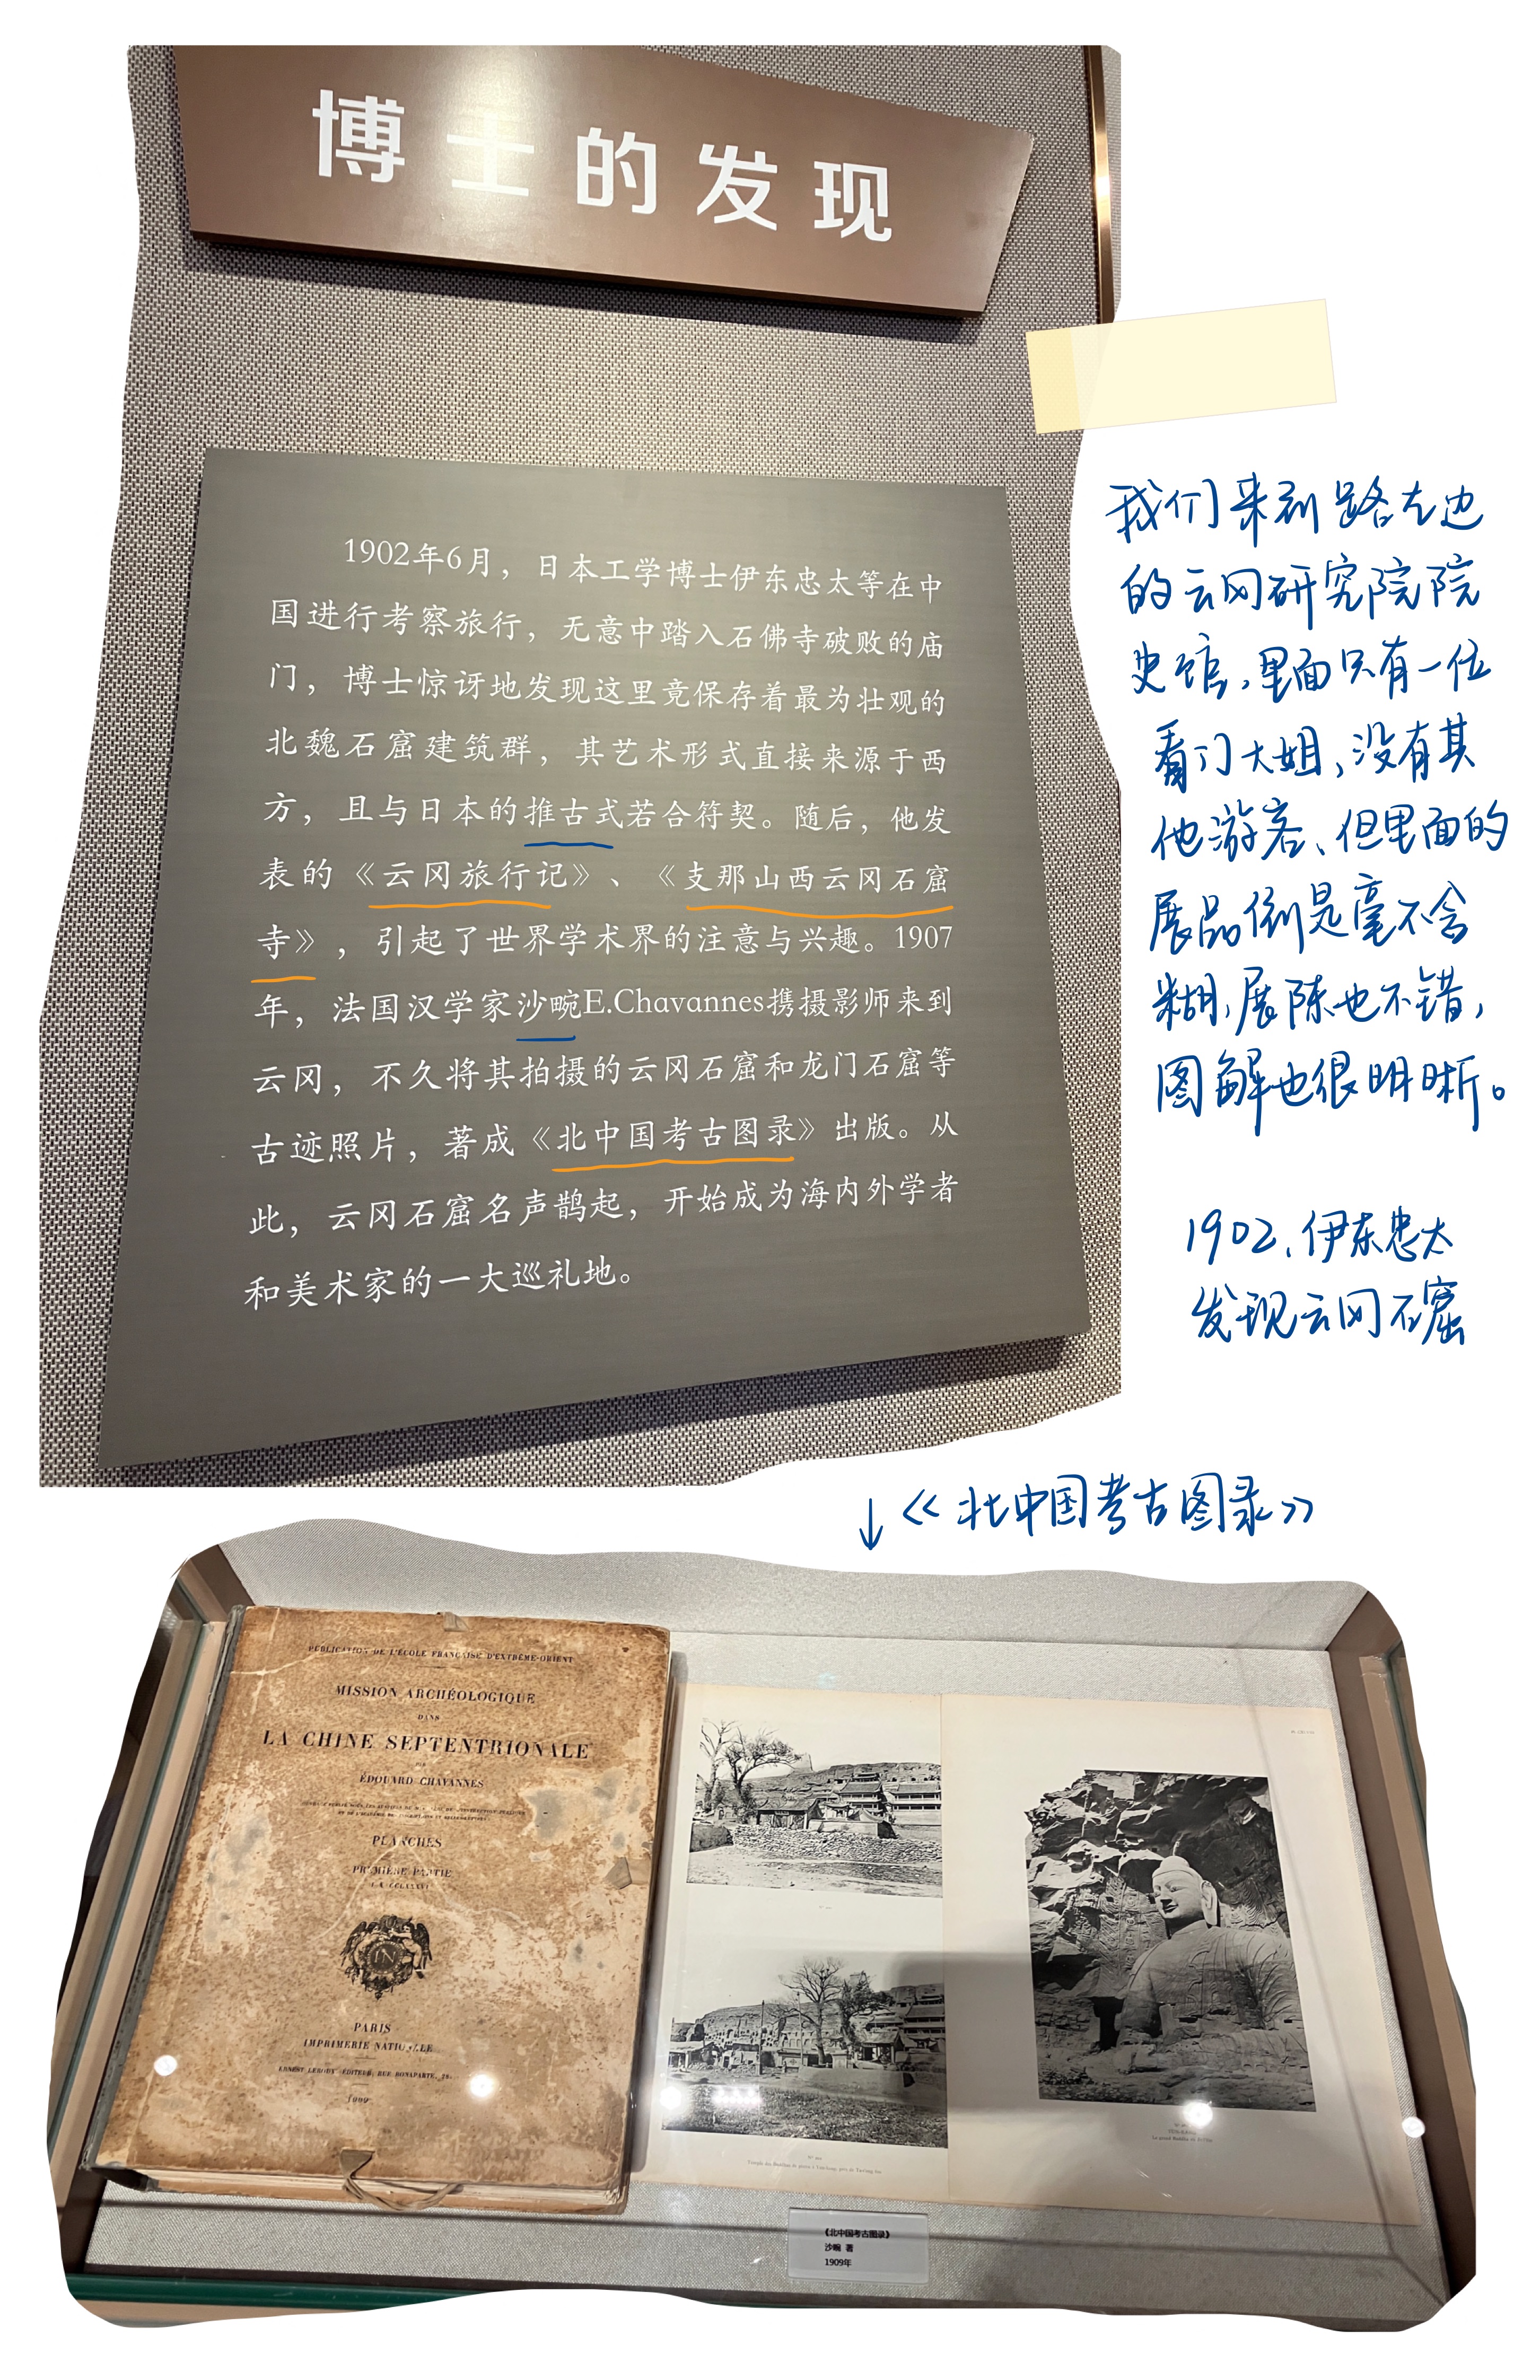 博士的发现
1902年6月，日本工学博士伊东忠太等在中
国进行考察旅行，无意中踏入石佛寺破败的庙
门，博士惊讶地发现这里竟保存着最为壮观的
北魏石窟建筑群，其艺术形式直接来源于西
方，且与日本的推古式若合符契。随后，他发
表的《云冈旅行记》、《支那山西云冈石窟
寺》，引起了世界学术界的注意与兴趣。1907
年，法国汉学家沙畹E.Chavannes携摄影师来到
云冈，不久将其拍摄的云冈石窟和龙门石窟等
古迹照片，著成《北中国考古图录》出版。从
此，云冈石窟名声鹊起，开始成为海内外学者
和美术家的一大巡礼地。
我们来到路左边
的云冈研究院院
史馆，里面只有一位
看门大姐，没有其
他游客、但里面的
展品倒是毫不含
糊，展陈也不错，
图解也很明晰。
1902、伊东忠太
发现云冈石窟
↓《北中国考古图录》
PUBLICATION DE L'ÉCOLE FRANÇAISE D'EXTRÊME-ORIENT
MISSION ARCHÉOLOGIQUE
DANS
LA CHINE SEPTENTRIONALE
PAR
ÉDOUARD CHAVANNES
PLANCHES
PREMIÈRE PARTIE
PARIS
IMPRIMERIE NATIONALE
ERNEST LEROUX, ÉDITEUR, RUE BONAPARTE, 28.
1909
《北中国考古图录》
沙畹 著
1909年